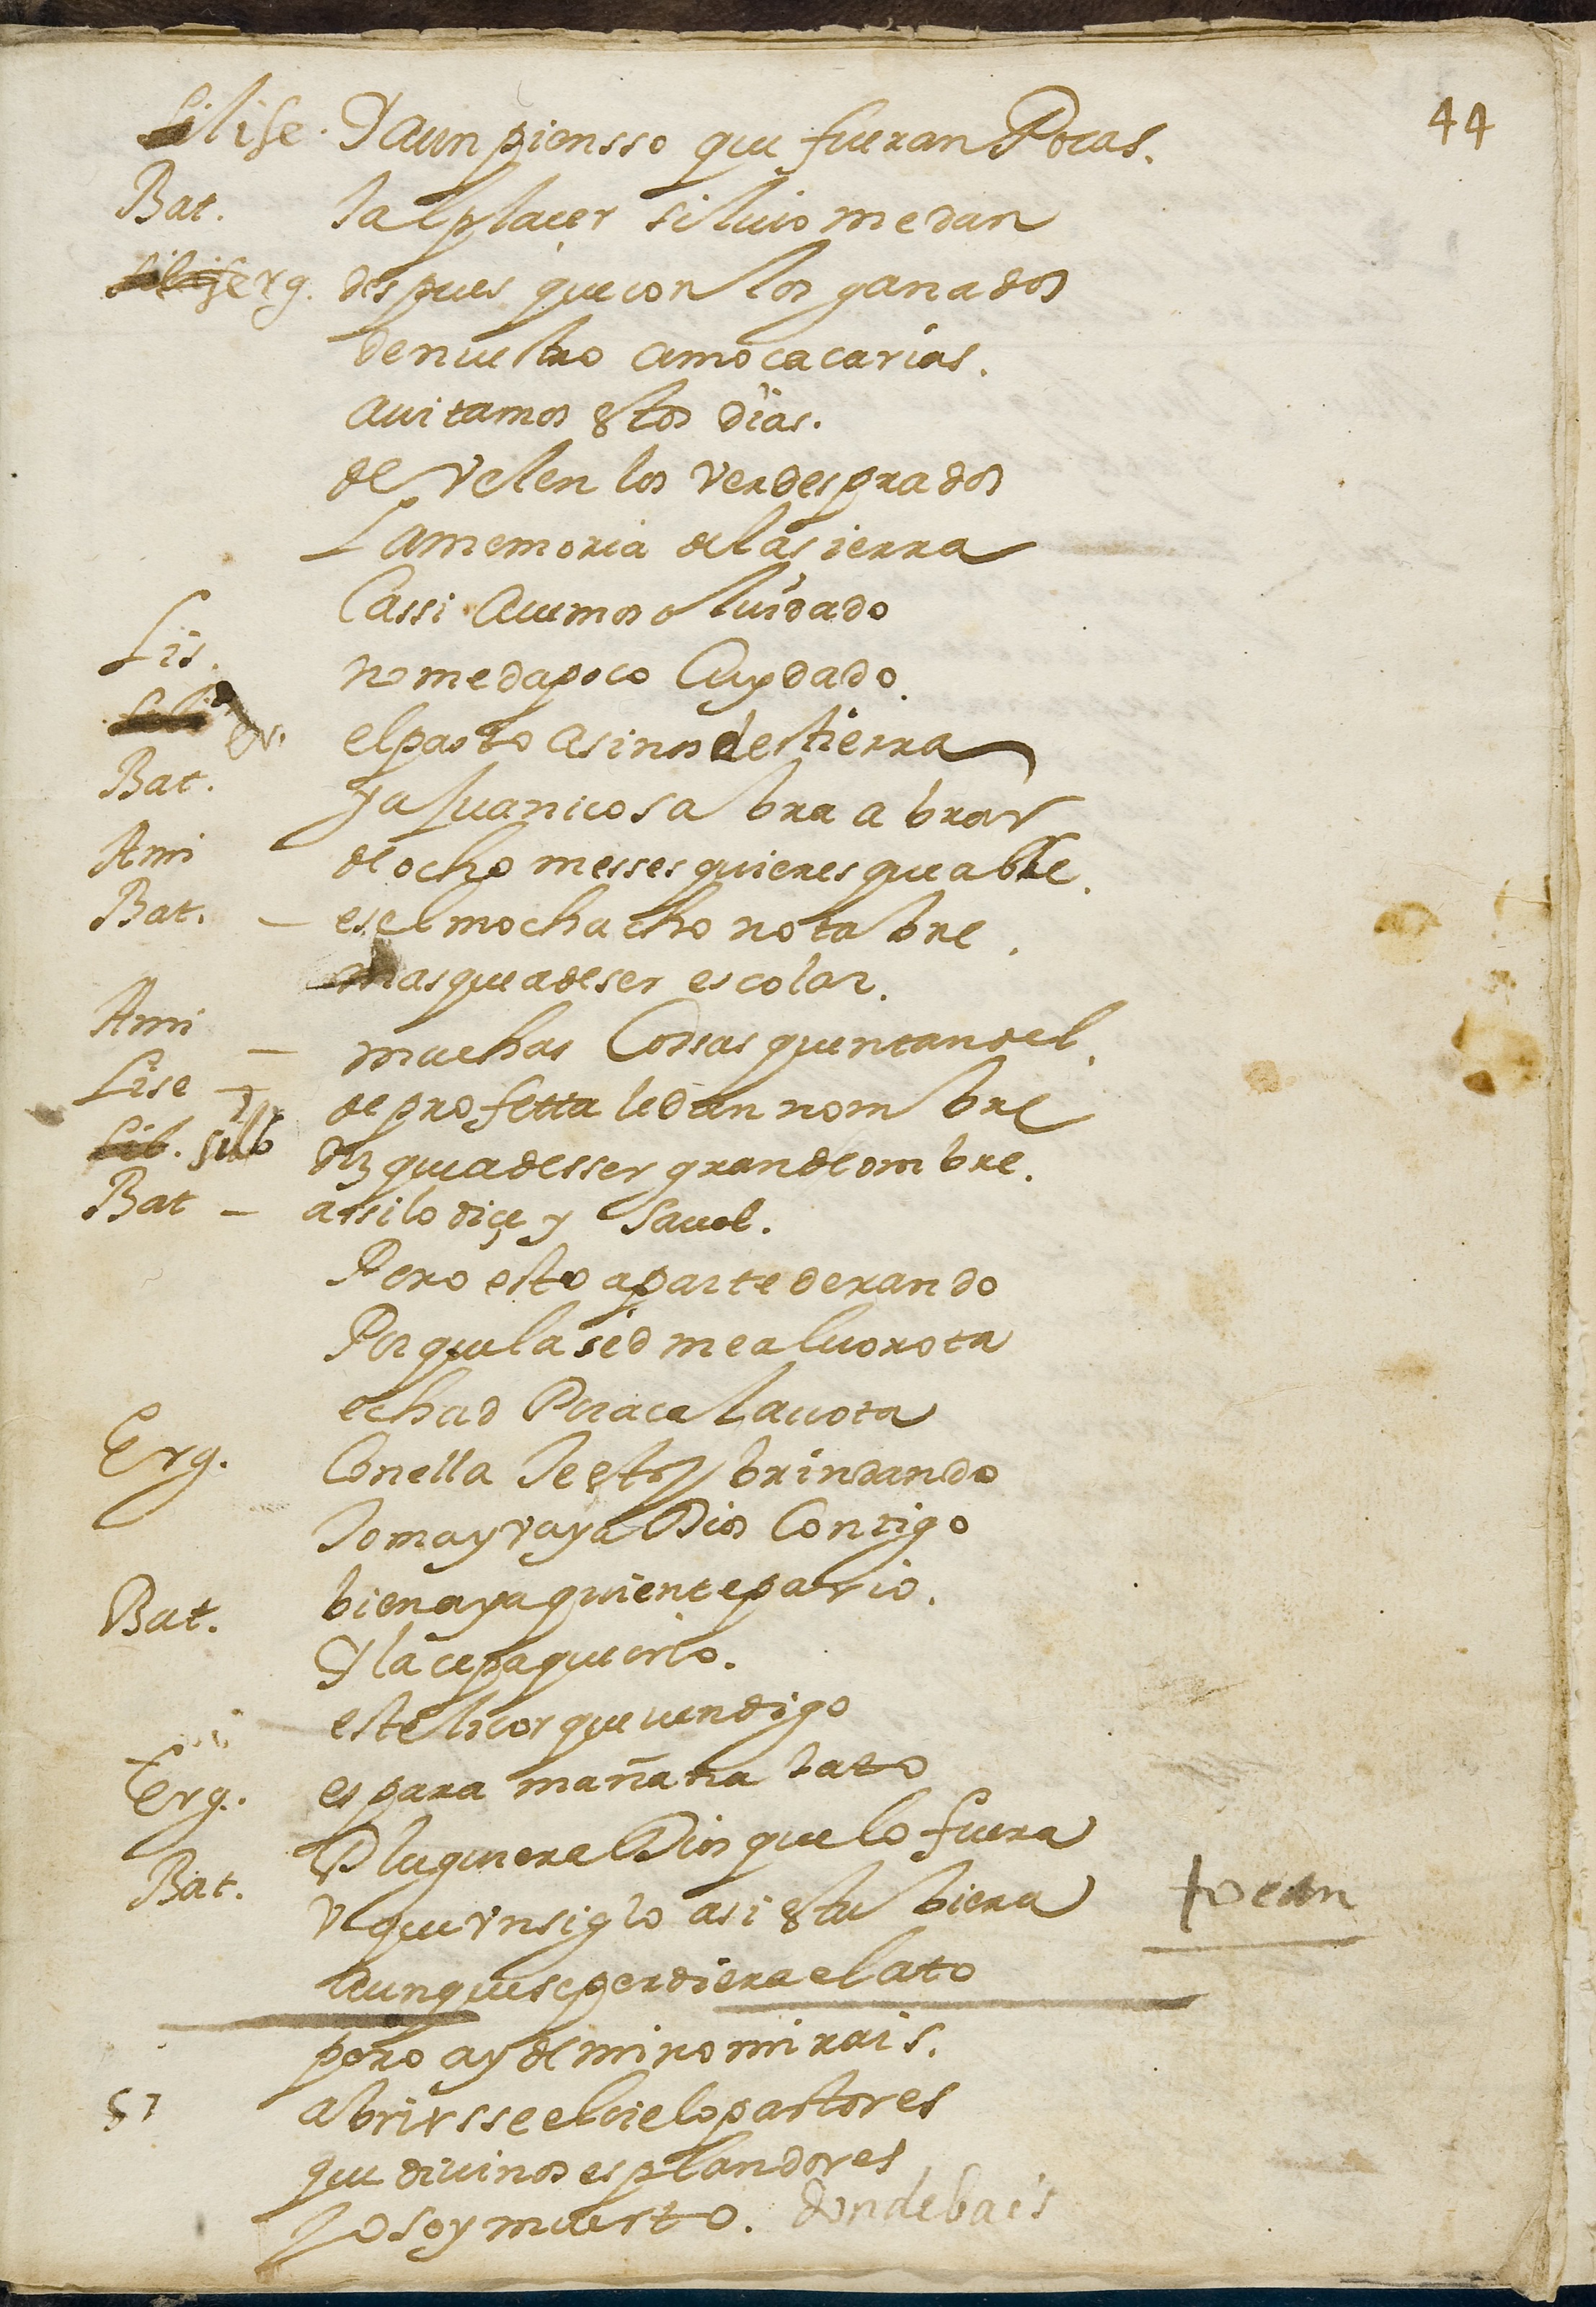 44
Lise. Y aun piensso que fueran Pocas.
Bat. tal plaçer siluio me dan
Erg. despues que con los ganados
de nuestro amo cacarias.
auitamos estos dias.
de velen los verdes prados
La memoria de la sierra
Cassi auemos oluidado
Lis. no me da poco Cuydado.
el pasto asi nos destierra
Bat. ya Juanico sabra abrar
Ami de ocho messes quieres que able.
Bat. – es el mochacho notable.
mas que a de ser escolar.
Ami – muchas Cossas quentan del.
Lise – de profetta le dan nombre
silb diz que a desser grande ombre.
Bat – assi lo diçe y Sauel.
Pero esto aparte dexando
Por que la sed me aluorota
echad Por aca la uota
Erg. Con ella te estoy brindando
toma y vaya Dios Contigo
Bat. bien aya quien te pario.
Y la cepa que crio.
este licor que uendigo
Erg. es para mañana tato
Bat. Pluguiera Dios que lo fuera
y que vn siglo asi estubiera
aunque se perdiera el ato
tocan
pero ay de mi no mirais.
SI abrirsse el cielo pastores
que diuinos esplandores
yo soy muerto. donde bais